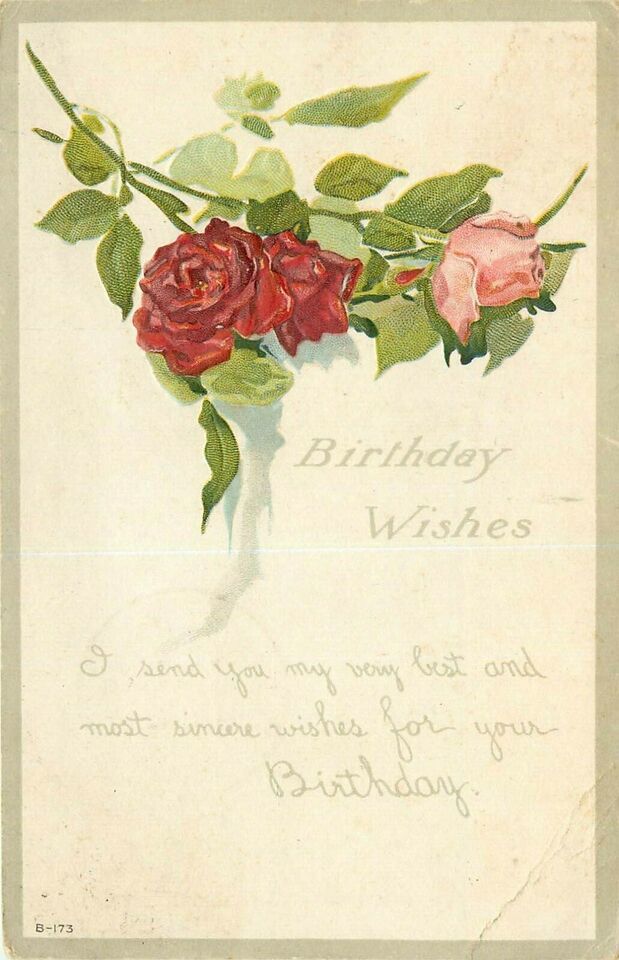 Birthday
Wishes
I send you my very best and
most sincere wishes for your
Birthday.
B-173